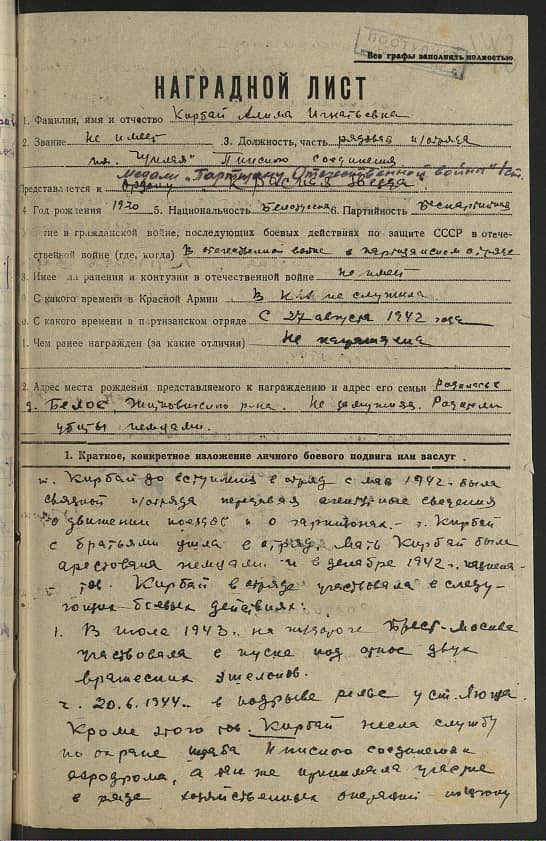 Все графы заполнить полностью
НАГРАДНОЙ ЛИСТ
1. Фамилия, имя и отчество Кирбай Алима Игнатьевна
2. Звание не имеет 3. Должность, часть рядовая п/отряда
Пинского соединения
Медали "Партизану Отечественной войны" I ст.
Представляется к ордену "Красная Звезда"
4 Год рождения 1920 5. Национальность Белоруска 6. Партийность Беспартийная
в гражданской войне, последующих боевых действиях по защите СССР в отече-
ственной войне (где, когда) В отечественной войне в партизанском отряде
ранения и контузии в отечественной войне Не имеет
С какого времени в Красной Армии В КА не служила
С какого времени в партизанском отряде С 27 августа 1942 года
1. Чем ранее награжден (за какие отличия) Не награждена
2. Адрес места рождения представляемого к награждению и адрес его семьи
д. Белос, Житковичского р-на. Не замужняя. Родители
убиты немцами.
1. Краткое, конкретное изложение личного боевого подвига или заслуг
т. Кирбай до вступления в отряд с мая 1942 г. была
связной п/отряда передавая агентурные сведения
о движении поездов и о гарнизонах. т. Кирбай
с братьями ушла в отряд. Мать Кирбай была
арестована немцами и в декабре 1942 г.
тов. Кирбай в отряде участвовала в следу-
ющих боевых действиях:
1. В июле 1943 г. на ж/дороге Брест-Москва
участвовала в пуске под откос двух
вражеских эшелонов.
20.6.1944 г. в подрыве рельс у ст.
Кроме этого тов. Кирбай несла службу
по охране штаба Пинского соединения
аэродрома, а так же принимала участие
в ряде хозяйственных операций